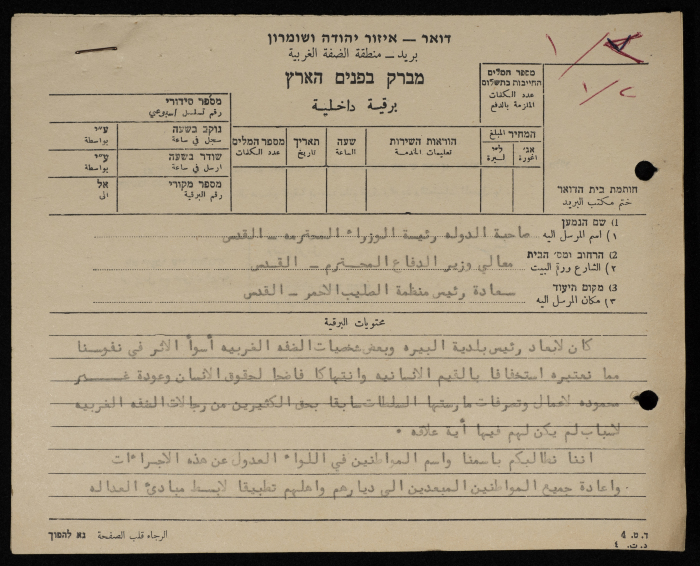 דואר – איזור יהודה ושומרון
بريد – منطقة الضفة الغربية
מברק בפנים הארץ
برقية داخلية
מספר המלים
החייבות בתשלום
عدد الكلمات
الملزمة بالدفع
המחיר המבלג
אג׳ ל״י
اجورة ليرة
הוראות השירות
تعليمات الخدمة
שעה
الساعة
תאריך
تاريخ
מספר המלים
عدد الكلمات
מספר סידורי
رقم تسلسل اسبوعي
נוקב בשעה ע״י
سجل في ساعة بواسطة
שודר בשעה ע״י
ارسل في ساعة بواسطة
מספר מקורי אל
رقم البرقية الى
חותמת בית הדואר
ختم مكتب البريد
1) שם הנמען
١) اسم المرسل اليه صاحبة الدوله رئيسة الوزراء المحترمه – القدس
2) הרחוב ומס׳ הבית
٢) الشارع ورقم البيت معالي وزير الدفاع المحترم – القدس
3) מקום היעוד
٣) مكان المرسل اليه سعادة رئيس منظمة الصليب الاحمر – القدس
محتويات البرقية
كان لابعاد رئيس بلدية البيره وبعض شخصيات الضفه الغربيه أسوأ الاثر في نفوسنا
مما نعتبره استخفافا بالقيم الانسانيه وانتهاكا فاضحا لحقوق الانسان وعودة غير
محموده لاعمال وتصرفات مارستها السلطات سابقا بحق الكثيرين من رجالات الضفه الغربيه
لاسباب لم يكن لهم فيها أية علاقه .
اننا نطالبكم باسمنا واسم المواطنين في اللواء العدول عن هذه الاجراءات
واعادة جميع المواطنين المبعدين الى ديارهم واهلهم تطبيقا لابسط مبادئ العداله
ד. ס. 4
د. ت. ٤
الرجاء قلب الصفحة נא להפוך